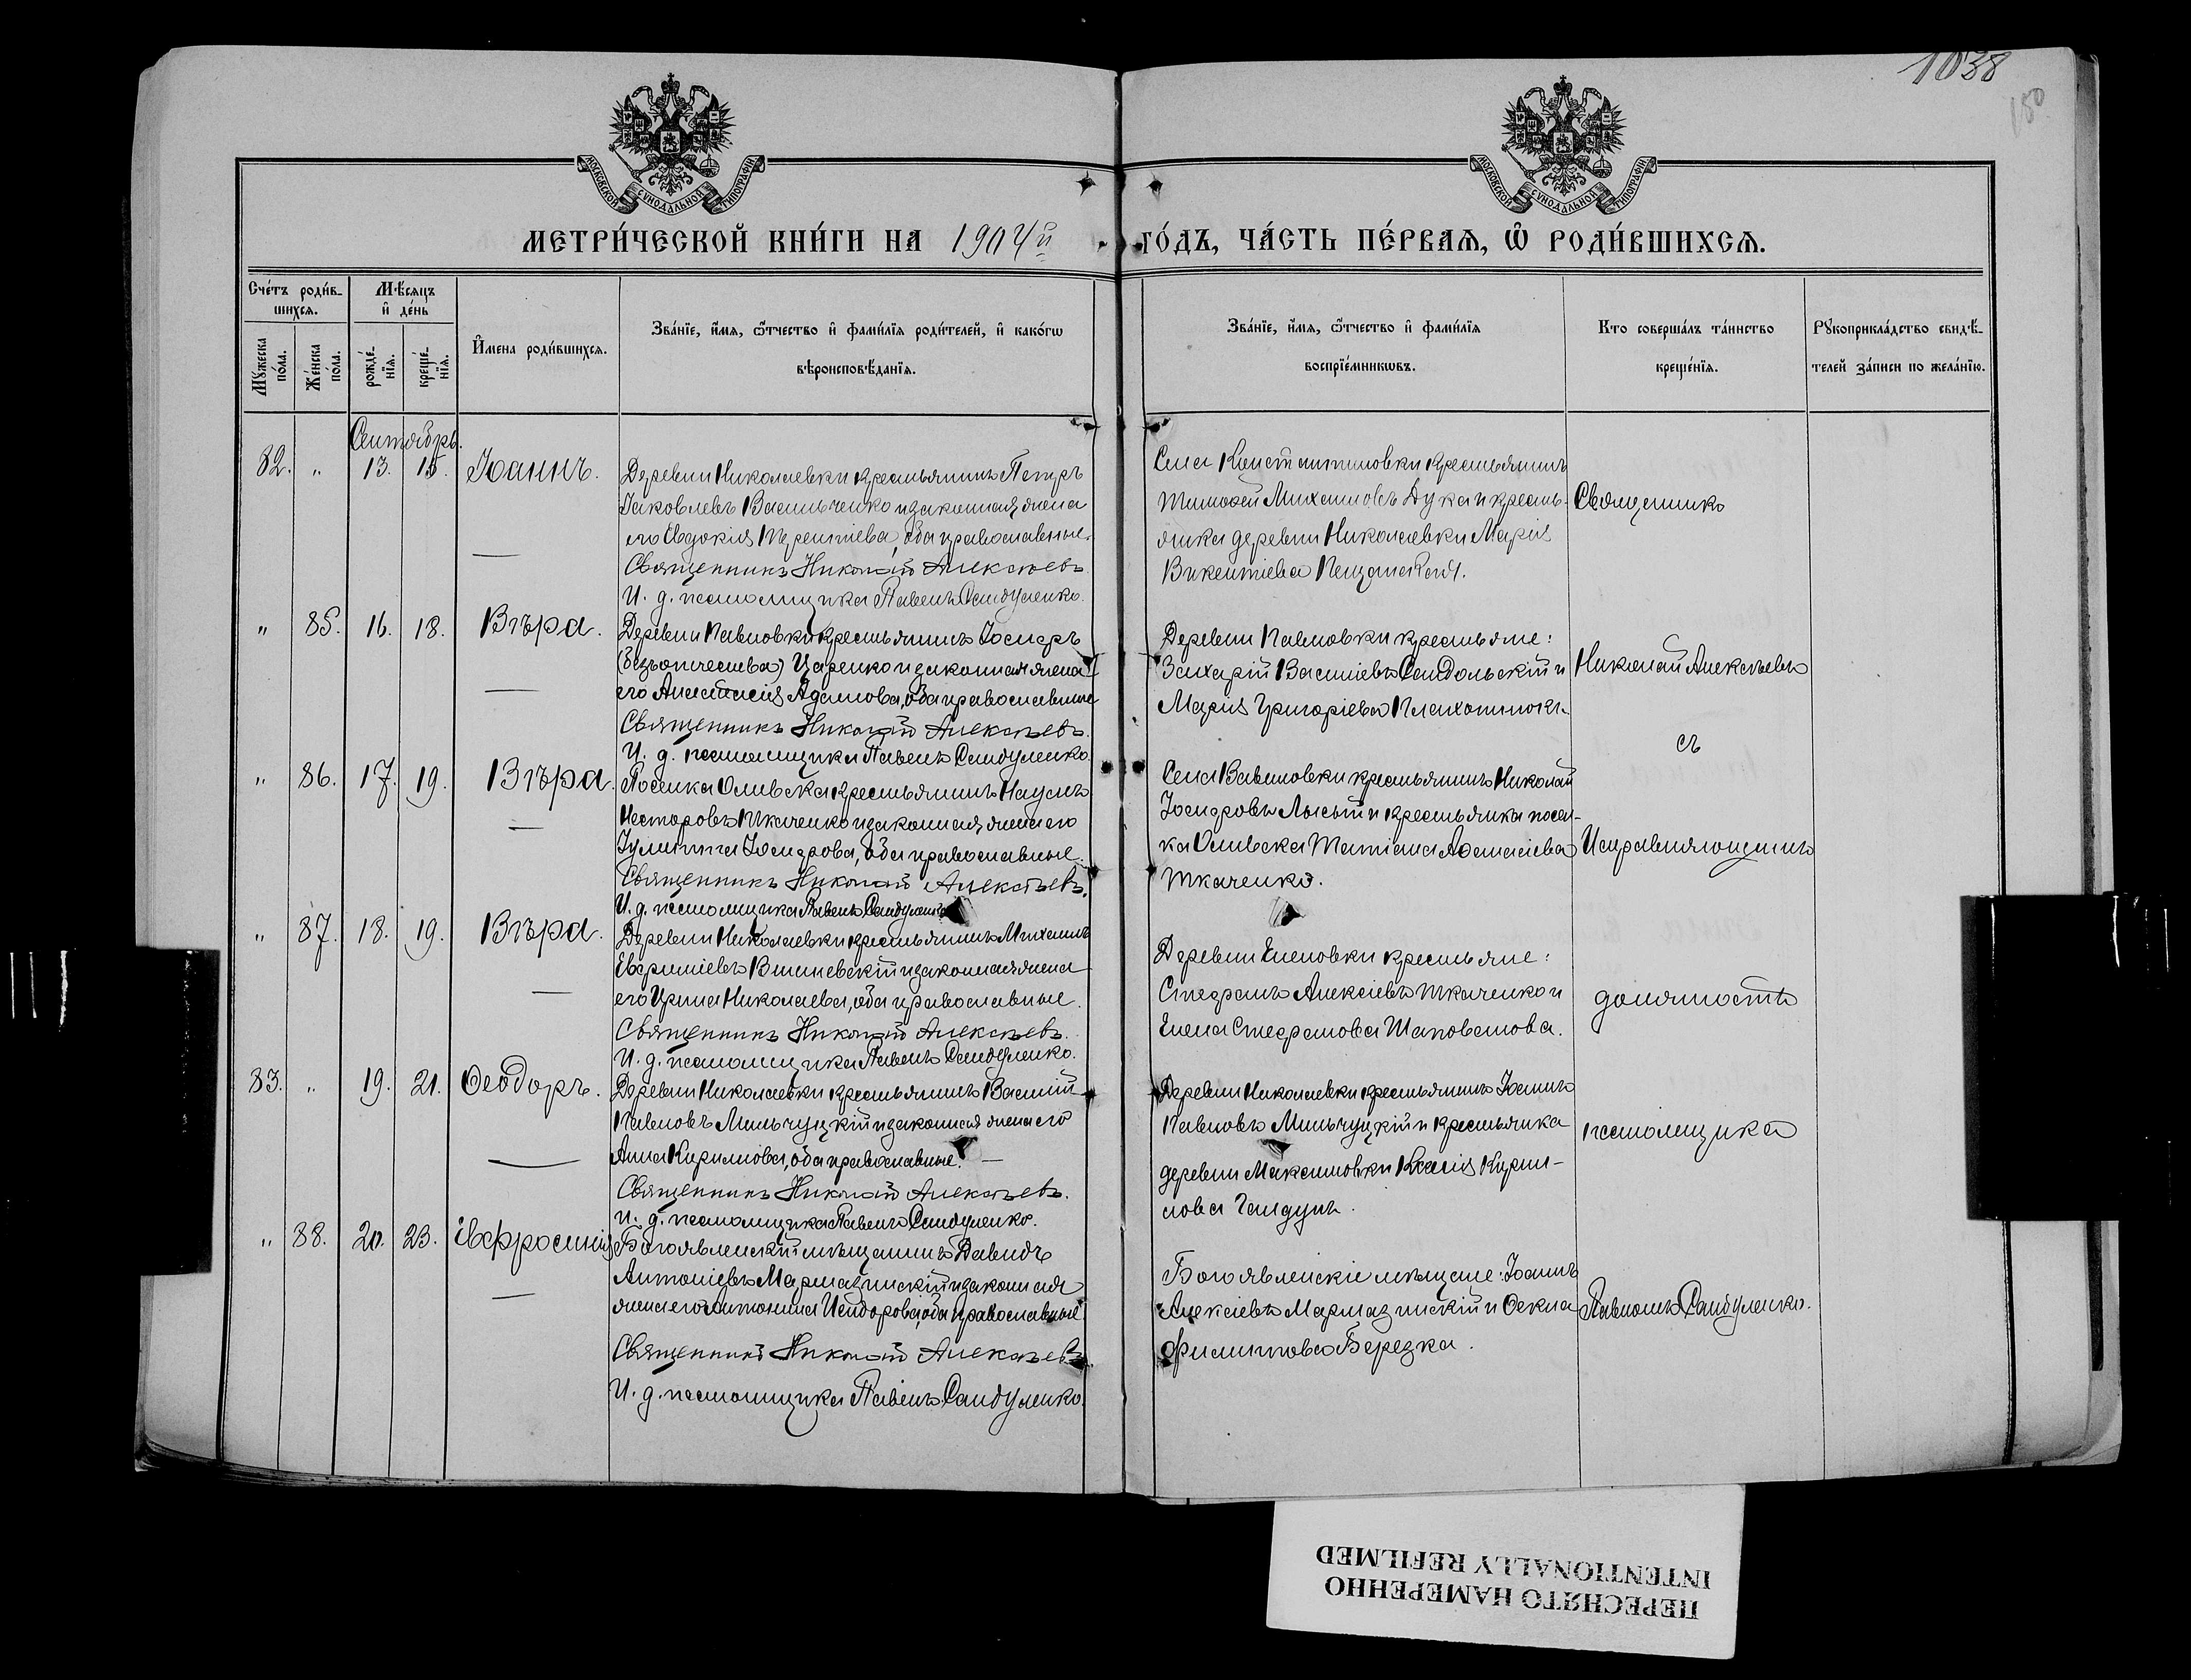 1038
150
МОСКОВСКОЙ СѴНОДАЛЬНОЙ ТИПОГРАФІИ
МОСКОВСКОЙ СѴНОДАЛЬНОЙ ТИПОГРАФІИ
МЕТРИ́ЧЕСКОЙ КНИ́ГИ НА 1904й ГО́ДЪ, ЧА́СТЬ ПЕ́РВАѦ, Ѡ РОДИ́ВШИХСѦ.
Сче́тъ роди́в-
шихсѧ.
Мꙋжеска по́ла.
Же́нска по́ла.
Мѣ́сѧцъ
и҆ де́нь
рожде́-
нїѧ.
креще́-
нїѧ.
И҆мена̀ роди́вшихсѧ.
Зва́нїе, и҆́мѧ, ѻ҆́тчество и҆ фами́лїѧ роди́телей, и҆ како́гѡ
вѣроисповѣ́данїѧ.
Зва́нїе, и҆́мѧ, ѻ҆́тчество и҆ фами́лїѧ
воспрїе́мникѡвъ.
Кто соверша́лъ та́инство
креще́нїѧ.
Рꙋкоприкла́дство свидѣ́-
телей за́писи по жела́нїю.
Сентябрь.
82. " 13. 15. Іоаннъ.
Деревни Николаевки крестьянинъ Петръ
Іаковлевъ Васильченко и законная жена
его Евдокія Терентіева, оба православные.
Священникъ Николай Алексѣевъ.
И. д. псаломщика Павелъ Сандуленко.
Села Константиновки крестьянинъ
Тимоѳей Михаиловъ Дука и кресть-
янка деревни Николаевки Марія
Викентіева
Священникъ
" 85. 16. 18. Вѣра.
Деревни Павловки крестьянинъ Іосифъ
(безъ отчества) Царенко и законная жена
его Анастасія Адамова, оба православные
Священникъ Николай Алексѣевъ.
И. д. псаломщика Павелъ Сандуленко.
Деревни Павловки крестьяне:
Захарій Васильевъ Сандольскій и
Марія Григоріева
Николай Алексѣевъ
съ
" 86. 17. 19. Вѣра.
Поселка Ольвска крестьянинъ Наумъ
Несторовъ Ткаченко и законная жена его
Іулитта Іосифова, оба православные.
Священникъ Николай Алексѣевъ.
И. д. псаломщика Павелъ Сандуленко
Села Вавиловки крестьянинъ Николай
Іосифовъ Лысый и крестьянка посел-
ка Ольвска Татіана Аѳанасіева
Ткаченко.
Исправляющимъ
" 87. 18. 19. Вѣра.
Деревни Николаевки крестьянинъ Михаилъ
Евфиміевъ Вишневскій и законная жена
его Ирина Николаева, оба православные.
Священникъ Николай Алексѣевъ.
И. д. псаломщика Павелъ Сандуленко.
Деревни Еленовки крестьяне:
Стефанъ Алексіевъ Ткаченко и
Елена Стефанова Шаповалова.
должность
83. " 19. 21. Ѳеодоръ.
Деревни Николаевки крестьянинъ Василій
Павловъ Мильчуцкій и законная жена его
Анна Кириллова, оба православные. —
Священникъ Николай Алексѣевъ.
И. д. псаломщика Павелъ Сандуленко.
Деревни Николаевки крестьянинъ Іоаннъ
Павловъ Мильчуцкій и крестьянка
деревни Максимовки Ксенія Кирил-
лова Гандунъ.
псаломщика
" 88. 20. 23. Евфросинія
Богоявленскій мѣщанинъ Давидъ
Антоніевъ Мармазинскій и законная
жена его Антонина Исидорова, оба православные
Священникъ Николай Алексѣевъ.
И. д. псаломщика Павелъ Сандуленко.
Богоявленскіе мѣщане: Іоаннъ
Алексіевъ Мармазинскій и Ѳекла
Филиппова Березка.
Павломъ Сандуленко.
ПЕРЕСНЯТО НАМЕРЕННО
INTENTIONALLY REFILMED